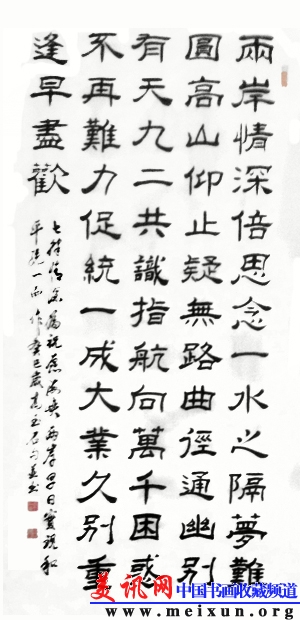 兩岸情深倍思念一水之隔夢難
圓高山仰止疑無路曲徑通幽别
有天九二共識指航向萬千困惑
不再難力促統一成大業久别重
逢早盡歡
祝愿海峽兩岸早日實現和
平統一而作癸巳歲
美讯网 中国书画收藏频道
www.meixun.org